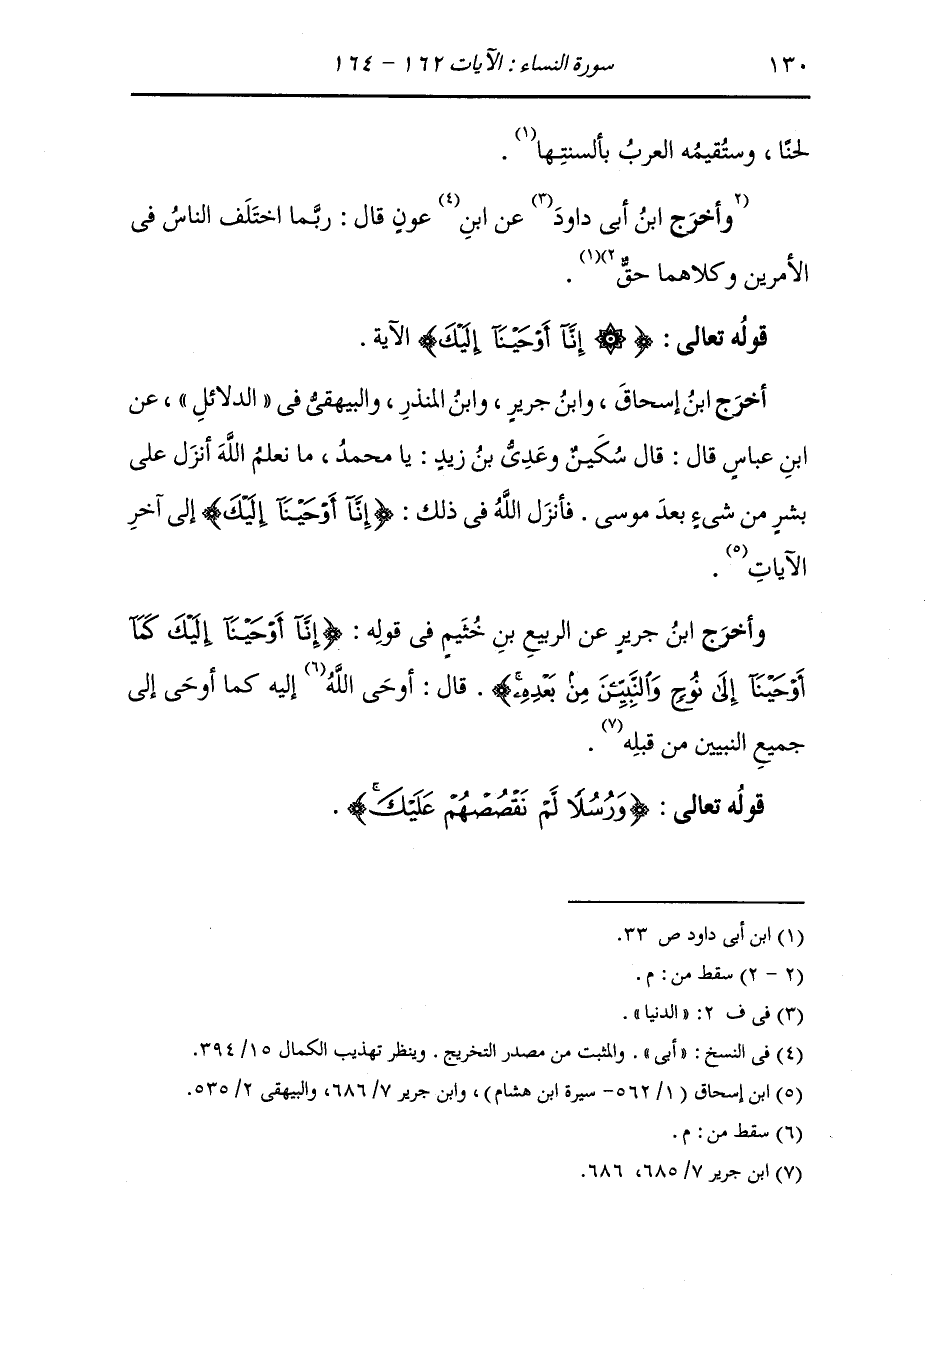 ١٣٠ سورة النساء : الآيات ١٦٢ - ١٦٤
لحنًا ، وستُقيمُه العربُ بألسنتِها(١) .
(٢وأخرَج ابنُ أبى داودَ(٣) عن ابنِ(٤) عونٍ قال : ربَّما اختَلَف الناسُ فى
الأمرين وكلاهما حقٌّ٢)(١) .
قولُه تعالى : ﴿ ۞ إِنَّآ أَوْحَيْنَآ إِلَيْكَ﴾ الآية .
أخرَج ابنُ إسحاقَ ، وابنُ جريرٍ ، وابنُ المنذرِ ، والبيهقىُّ فى « الدلائلِ » ، عن
ابنِ عباسٍ قال : قال سُكَينٌ وعَدِىُّ بنُ زيدٍ : يا محمدُ ، ما نعلمُ اللَّهَ أنزَل على
بشرٍ من شىءٍ بعدَ موسى . فأنزَل اللَّهُ فى ذلك : ﴿إِنَّآ أَوْحَيْنَآ إِلَيْكَ﴾ إلى آخرِ
الآياتِ(٥) .
وأخرَج ابنُ جريرٍ عن الربيعِ بنِ خُثَيمٍ فى قولِه : ﴿إِنَّآ أَوْحَيْنَآ إِلَيْكَ كَمَآ
أَوْحَيْنَآ إِلَىٰ نُوحٍ وَٱلنَّبِيِّـۧنَ مِنۢ بَعْدِهِۦۚ﴾ . قال : أوحَى اللَّهُ(٦) إليه كما أوحَى إلى
جميعِ النبيين من قبلِه(٧) .
قولُه تعالى : ﴿وَرُسُلًا لَّمْ نَقْصُصْهُمْ عَلَيْكَۚ﴾ .
(١) ابن أبى داود ص ٣٣.
(٢ - ٢) سقط من : م .
(٣) فى ف ٢: « الدنيا » .
(٤) فى النسخ : « أبى » . والمثبت من مصدر التخريج . وينظر تهذيب الكمال ١٥/ ٣٩٤.
(٥) ابن إسحاق ( ١/ ٥٦٢- سيرة ابن هشام) ، وابن جرير ٧/ ٦٨٦، والبيهقى ٢/ ٥٣٥.
(٦) سقط من : م .
(٧) ابن جرير ٧/ ٦٨٥، ٦٨٦.